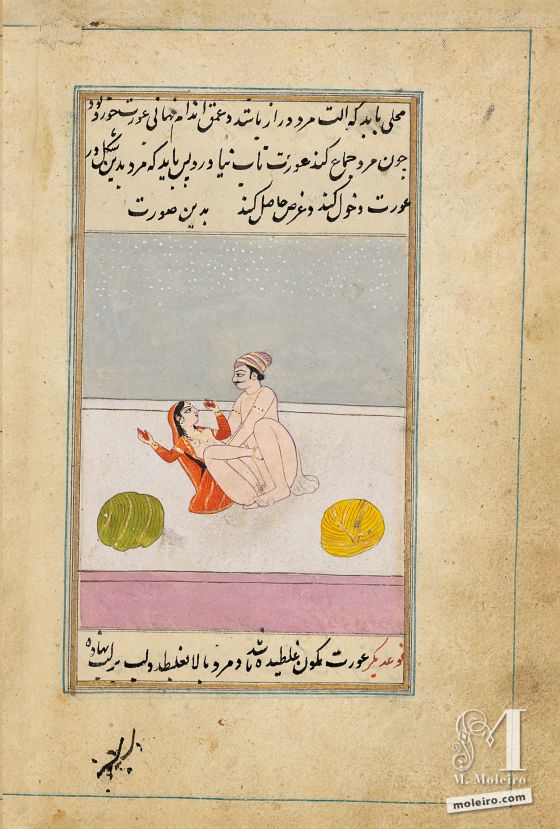 محلی باید که الت مرد دراز باشد و عمق اندام نهانی عورت خورد بود
چون مرد جماع کند عورت تاب نیاورد پس باید که مرد بدین شکل در
عورت دخول کند و غرض حاصل کند بدین صورت
نوعدیکر عورت نکون غلطیده باشد و مرد بالا بغلطد و لب بر لب نهاده
M. Moleiro
moleiro.com